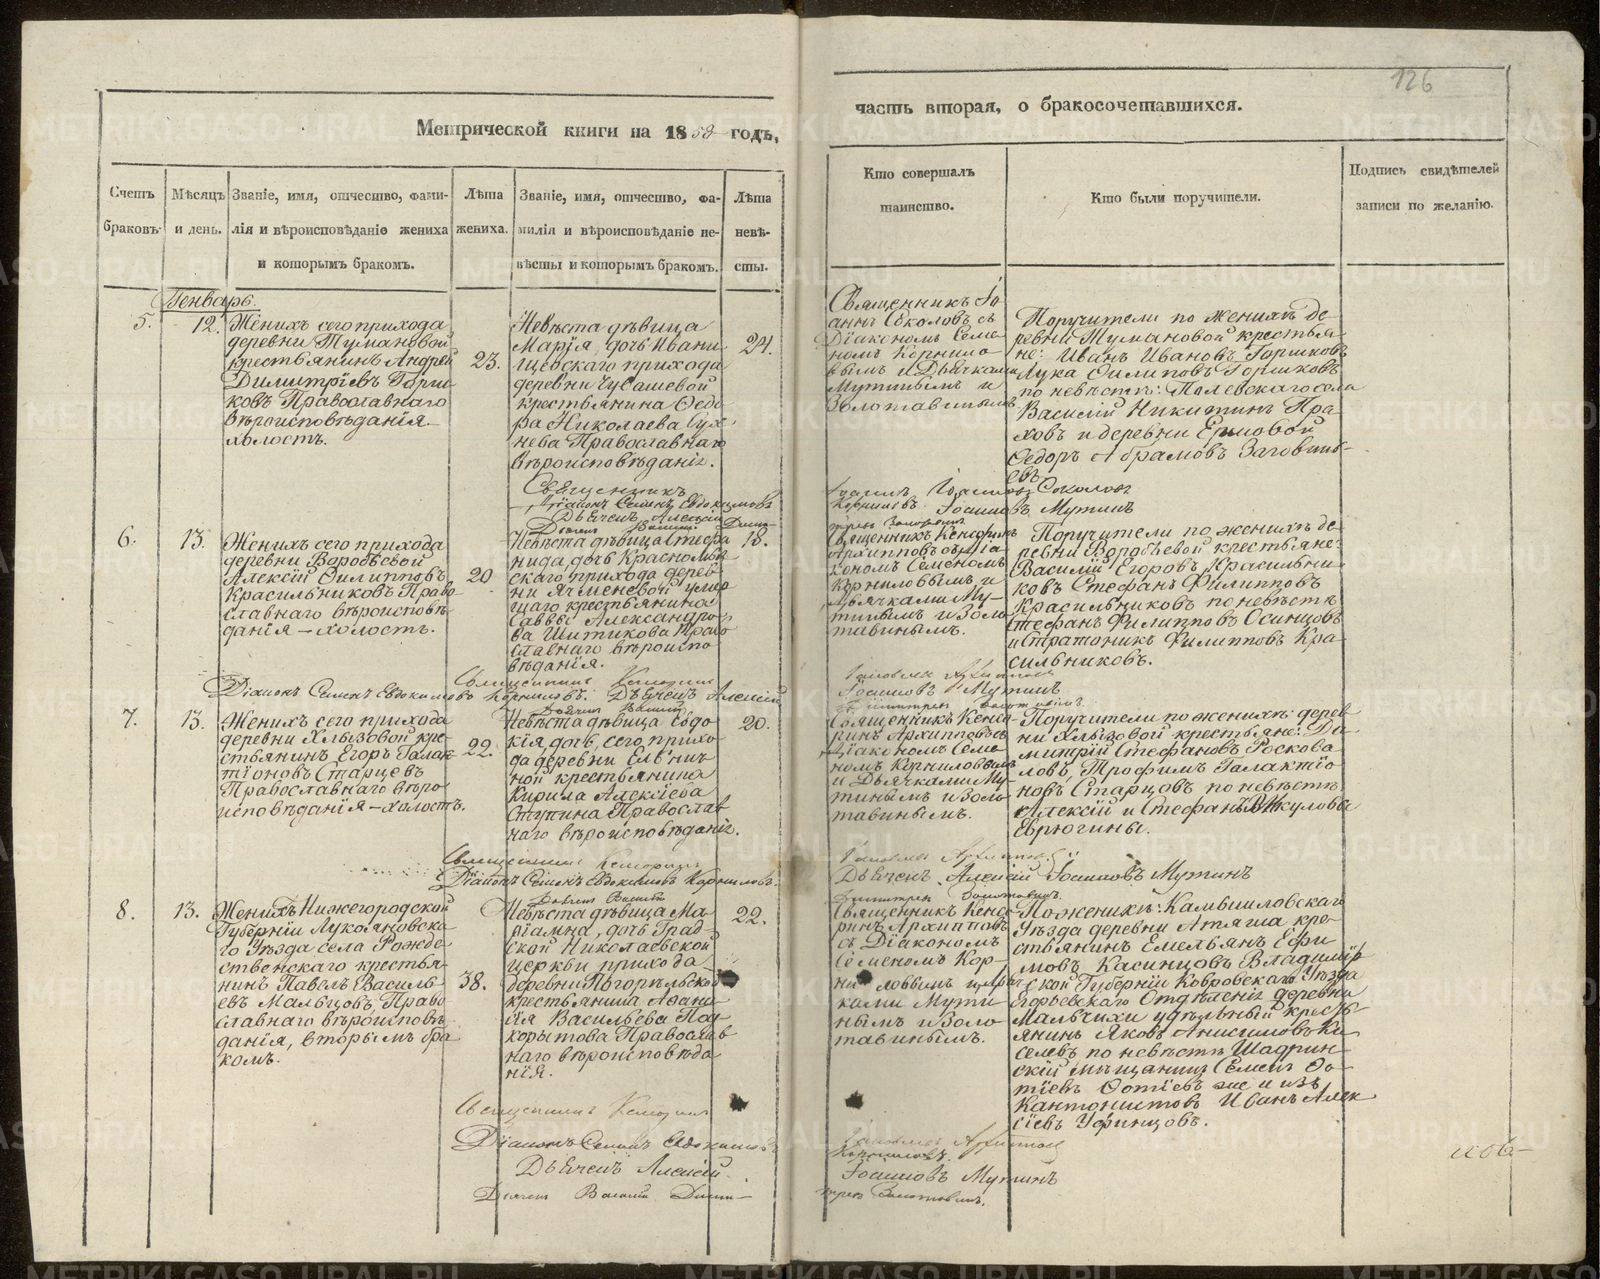 126
часть вторая, о бракосочетавшихся.
Метрической книги на 1858 годъ,
Счетъ браковъ.
Мѣсяцъ и день.
Званіе, имя, отчество, фами-
лія и вѣроисповѣданіе жениха
и которымъ бракомъ.
Лѣта жениха.
Званіе, имя, отчество, фа-
милія и вѣроисповѣданіе не-
вѣсты и которымъ бракомъ.
Лѣта невѣ-
сты.
Кто совершалъ
таинство.
Кто были поручители.
Подпись свидѣтелей
записи по желанію.
Генварь.
5.
12.
Женихъ сего прихода
деревни Тумановой
крестьянинъ Андрей
Димитріевъ Горш-
ковъ Православнаго
вѣроисповѣданія.
холостъ.
23.
Невѣста дѣвица
Марія, дочь Ивани-
щевскаго прихода
деревни Чувашевой
крестьянина Ѳедо-
ра Николаева Сух-
нева Православнаго
вѣроисповѣданія.
24.
Священникъ Іо-
аннъ Соколовъ съ
Діакономъ Семе-
номъ Корнило-
вымъ и Дьячками
Мутинымъ и
Золотавинымъ
Поручители по женихѣ де-
ревни Тумановой крестья-
не: Иванъ Ивановъ Горшковъ
Лука Филиповъ Горшковъ
по невѣстѣ: Полевскаго села
Василій Никитинъ Пра-
ховъ и деревни Ермовой
Ѳедоръ Абрамовъ Заговень-
евъ
Священникъ Іоаннъ Соколовъ
Діаконъ Семенъ Евдокимовъ Корниловъ
Дьячекъ Алексій Іоанновъ Мутинъ
6.
13.
Женихъ сего прихода
деревни Воробьевой
Алексій Филипповъ
Красильниковъ Право-
славнаго вѣроисповѣ-
данія – холостъ.
20
Невѣста дѣвица Стефа-
нида, дочь Красномы-
скаго прихода дерев-
ни Ячменевой умер-
шаго крестьянина
Саввы Александро-
ва Шитикова Право-
славнаго вѣроиспо-
вѣданія.
18.
Священникъ Кенсоринъ
Архипповъ съ Діа-
кономъ Семеномъ
Корниловымъ и
Дьячками Му-
тинымъ и Золо-
тавинымъ.
Поручители по женихѣ де-
ревни Воробьевой крестьяне:
Василій Егоровъ Красильни-
ковъ Стефанъ Филипповъ
Красильниковъ по невѣстѣ
Стефанъ Филипповъ Осинцовъ
и Стратоникъ Филипповъ Кра-
сильниковъ.
Діаконъ Семенъ Евдокимовъ Корниловъ. Дьячекъ Алексій
Іоанновъ Мутинъ
7.
13.
Женихъ сего прихода
деревни Хлызовой кре-
стьянинъ Егоръ Галак-
тіоновъ Старцевъ
Православнаго вѣро-
исповѣданія – холостъ.
22.
Невѣста дѣвица Евдо-
кія дочь, сего прихо-
да деревни Ельнич-
ной крестьянина
Кирила Алексіева
Ступина Православ-
наго вѣроисповѣданія.
20.
Священникъ Кенсо-
ринъ Архипповъ съ
Діакономъ Семе-
номъ Корниловымъ
и Дьячками Му-
тинымъ и Золо-
тавинымъ.
Поручители по женихѣ: дерев-
ни Хлызовой крестьяне: Ди-
митрій Стефановъ Роскова-
ловъ, Трофимъ Галактіо-
новъ Старцовъ по невѣстѣ
Алексій и Стефанъ Викуловы
Еврюгины.
Діаконъ Семенъ Евдокимовъ Корниловъ.
Дьячекъ Алексій Іоанновъ Мутинъ
8.
13.
Женихъ Нижегородской
Губерніи Лукояновска-
го Уѣзда села Рожде-
ственскаго крестья-
нинъ Павелъ Василь-
евъ Мальцовъ, Право-
славнаго вѣроисповѣ-
данія, вторымъ бра-
комъ.
38.
Невѣста дѣвица Ма-
ріамна, дочь Град-
ской Николаевской
церкви прихода
деревни Погорѣльской
крестьянина Афана-
сія Васильева Под-
корытова Православ-
наго вѣроисповѣда-
нія.
22.
Священникъ Кенсо-
ринъ Архипповъ
съ Діакономъ
Семеномъ Кор-
ниловымъ и Дьяч-
ками Мути-
нымъ и Золо-
тавинымъ.
По женихѣ: Камышловскаго
Уѣзда деревни Атяша кре-
стьянинъ Емельянъ Ефи-
мовъ Касинцовъ Владимір-
ской Губерніи Ковровскаго Уѣзда
Егорьевскаго Отдѣленія деревни
Мальчихи удѣльный кресть-
янинъ Яковъ Анисимовъ Ки-
селевъ по невѣстѣ Шадрин-
скій мѣщанинъ Семенъ Фо-
тіевъ Фотіевъ же и изъ
Кантонистовъ Иванъ Алек-
сіевъ Уфинцовъ.
Священникъ Кенсоринъ Архипповъ
Діаконъ Семенъ Евдокимовъ Корниловъ.
Дьячекъ Алексій Іоанновъ Мутинъ
Дьячекъ Василій Димитріевъ Золотавинъ.